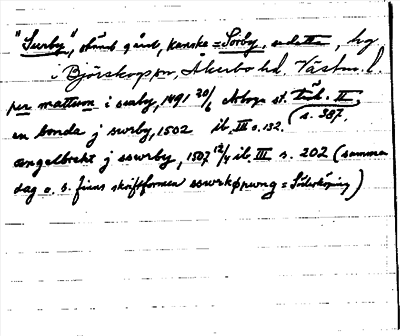 "Surby", okänd gård, kanske = Sörby, sedetta, hg
i Björskogs sn, Åkerbo hd, Västm. l.
per mattum i surby, 1491 20/6 Arboga st. Tänk. II,
(s. 387,
en bonda j swrby, 1502 ib. III s. 132.
ængelbrekt j sswrby, 1507 12/4 ib. III s. 202 (samma
dag o. s. finns skriftformen sswrkøpung = Söderköping)